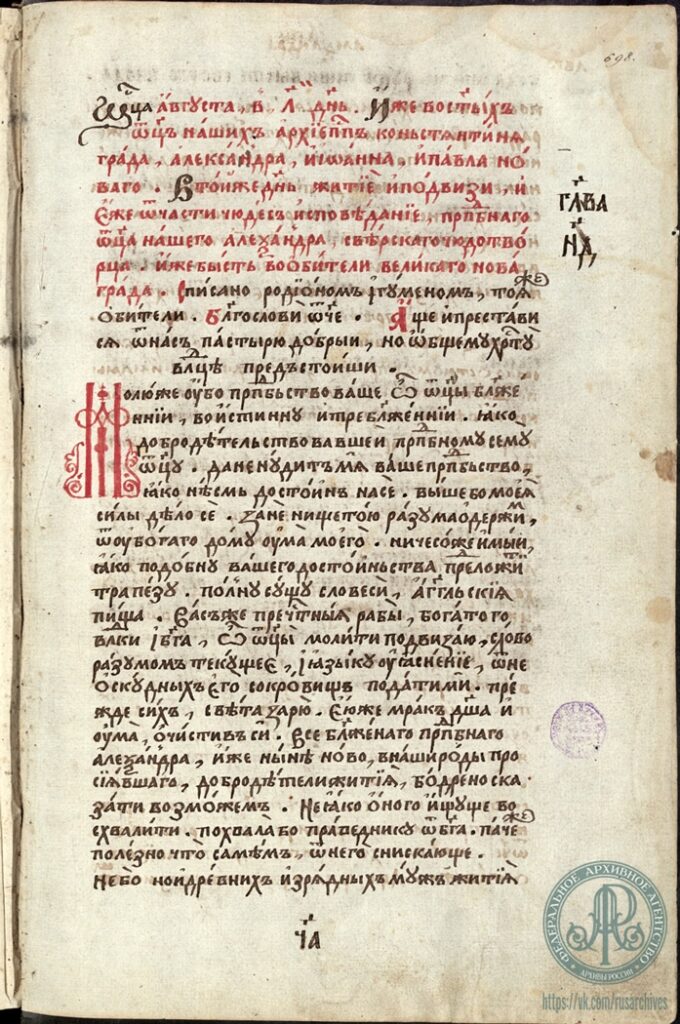 698.
Мц҃а августа, в Л҃ дн҃ь. Иже во ст҃ыхъ
ѿц҃ъ нашихъ архіеп҃пъ коньстянтиня
града, александра, и іѡанна, и павла но
ваго. В тойже дн҃ь житіе и подвизи, и
еже ѿчасти чюдесъ исповѣданіе, прп҃бнаго
ѿц҃а нашего алеѯандра, свѣрскаго чюдотво
рца иже бысть во обители великаго нова
града. списано родіономъ ігуменомъ, тоя же
обители. бл҃гослови ѿч҃е. Аще и престави
ся ѿ насъ пастырю добрыи, но ѡбщему хр҃ту
влц҃ѣ предъстоиши.
Глава
Н҃Д
Молю же оубо прп҃бьство ваше ѽ ѿц҃ы бл҃же
нніи, воистинну и требл҃женніи. ꙗко
добродѣтельствовавшей прп҃бному сему
ѿц҃у. да не нудитъ мя ваше прп҃бьство,
ꙗко нѣсмь достоинъ на се. выше бо моеѧ
силы дѣло се. зане нищетою разума одержи,
ѿ оубогаго дому оума моего. ничесоже имый,
ꙗко подобну вашего достойньства преложи
трапезу. полну сущу словеси, аг҃гльскія
пища. Васъ же преч҃тныя рабы, богатого
вл҃ки і бг҃а, ѽ ѿц҃ы молити подвизаю, слово
разумомъ текущее, і ꙗзыку оуꙗсненіе, ѿ не
оскудныхъ его сокровищъ подати ми. пре
жде сихъ, свѣта зарю. Еюже мракъ дш҃а и
оума, очистивъ си. Все бл҃женаго прп҃бнаго
алеѯандра, иже нынѣ ново, в наши роды про
сіѧвшаго, добродѣтели житія, бодрено ска
зати возможемъ. Не ꙗко оного ищуще во
схвалити. похвала бо праведнику ѿ бг҃а. паче же
полезно что самѣмъ, ѿ него снискающе.
Не бо но и древнихъ изрядныхъ мужъ житія
Ч҃А
ФЕДЕРАЛЬНОЕ АРХИВНОЕ АГЕНТСТВО
АРХИВЫ РОССИИ
https://vk.com/rusarchives